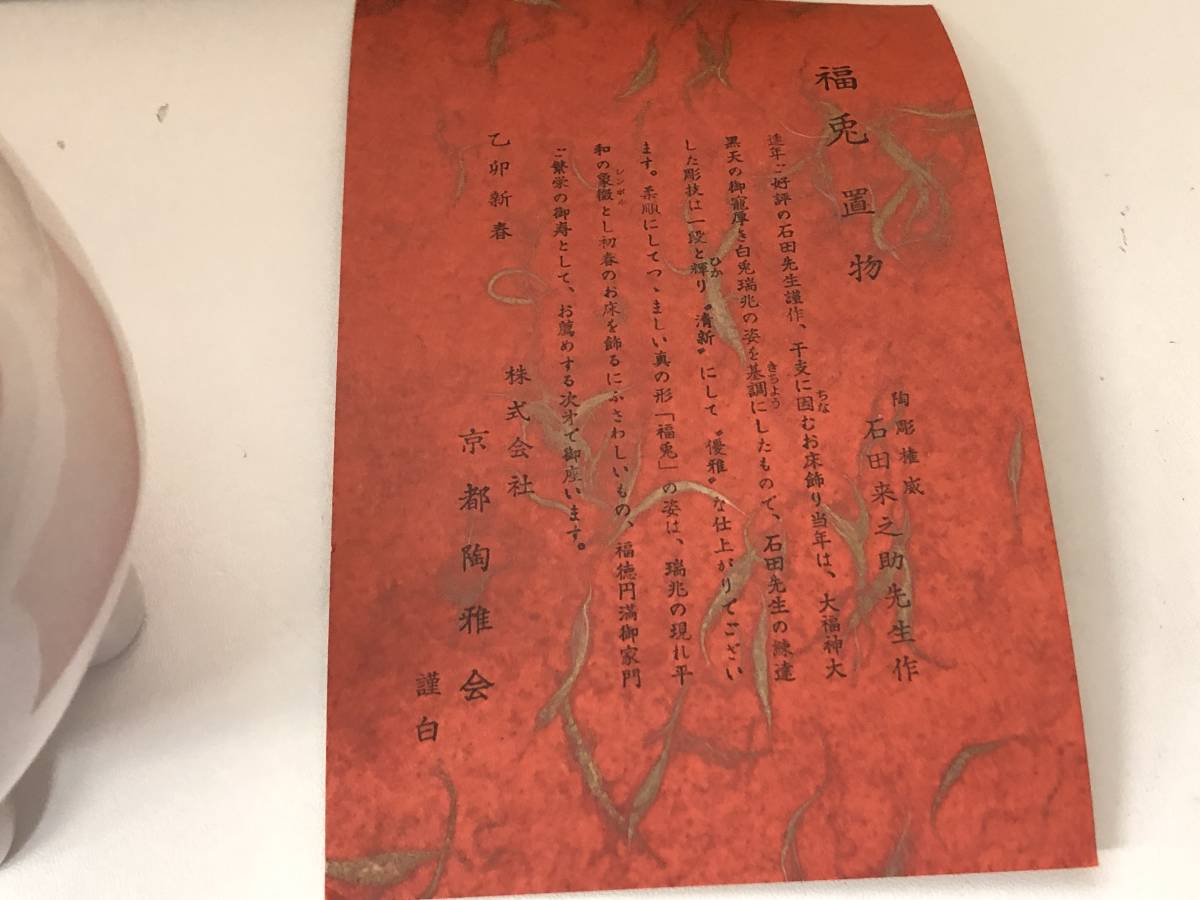 福兎置物
陶彫権威
石田来之助先生作
連年ご好評の石田先生謹作、干支に因むお床飾り当年は、大福神大
ちな
黒天の御寵厚き白兎瑞兆の姿を基調にしたもので、石田先生の練達
きちょう
した彫技は一段と輝り〝清新〟にして〝優雅〟な仕上がりでござい
ひか
ます。柔順にしてつゝましい真の形「福兎」の姿は、瑞兆の現れ平
和の象徴とし初春のお床を飾るにふさわしいもの、福徳円満御家門
シンボル
ご繁栄の御寿として、お薦めする次才で御座います。
乙卯新春
株式会社
京都陶雅会
謹白